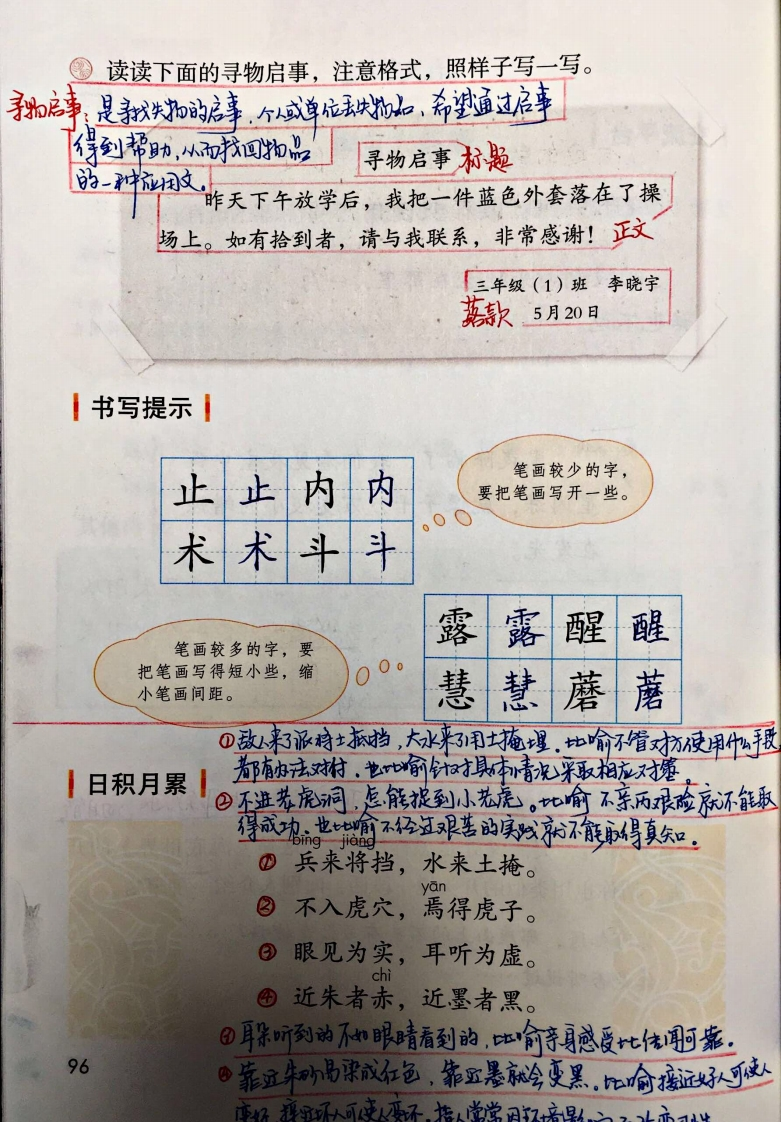 读读下面的寻物启事，注意格式，照样子写一写。
寻物启事：是寻找失物的启事，个人或单位丢失物品，希望通过启事
得到帮助，从而找回物品
的一种应用文。
寻物启事 标题
昨天下午放学后，我把一件蓝色外套落在了操
场上。如有拾到者，请与我联系，非常感谢！ 正文
三年级（1）班 李晓宇
落款 5月20日
书写提示
止 止 内 内
术 术 斗 斗
笔画较少的字，
要把笔画写开一些。
露 露 醒 醒
慧 慧 蘑 蘑
笔画较多的字，要
把笔画写得短小些，缩
小笔画间距。
①敌人来了派将士抵挡，大水来了用土掩埋。比喻不管对方使用什么手段
都有办法对付。也比喻针对具体情况采取相应对策。
日积月累
②不进老虎洞，怎能捉到小老虎。比喻不亲历艰险就不能取
得成功。也比喻不经过艰苦的实践就不能取得真知。
bīng jiàng
①兵来将挡，水来土掩。
yān
②不入虎穴，焉得虎子。
③眼见为实，耳听为虚。
chì
④近朱者赤，近墨者黑。
③耳朵听到的不如眼睛看到的，比喻亲身感受比传闻可靠。
④靠近朱砂易染成红色，靠近墨就会变黑。比喻接近好人可使人
变好，接近坏人可使人变坏。指人常常因环境影
96